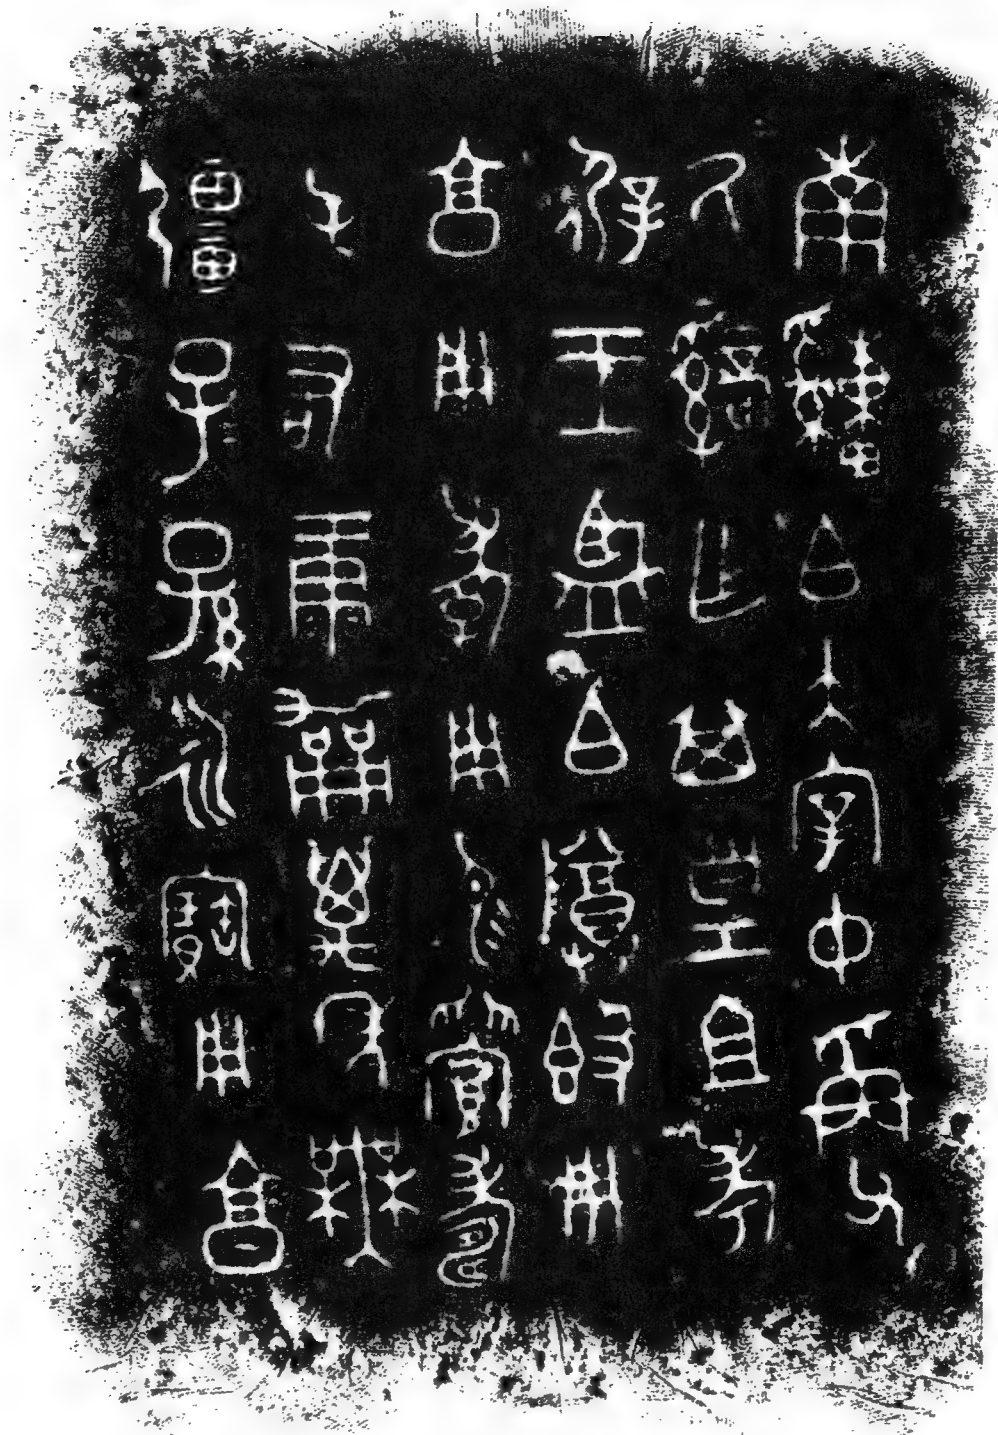 南申白大宰中爯父
厥辭乍其皇且考
遲王監白尊簋用
享用孝用易眉壽
屯右康勳萬年無
疆子子孫孫永寶用享